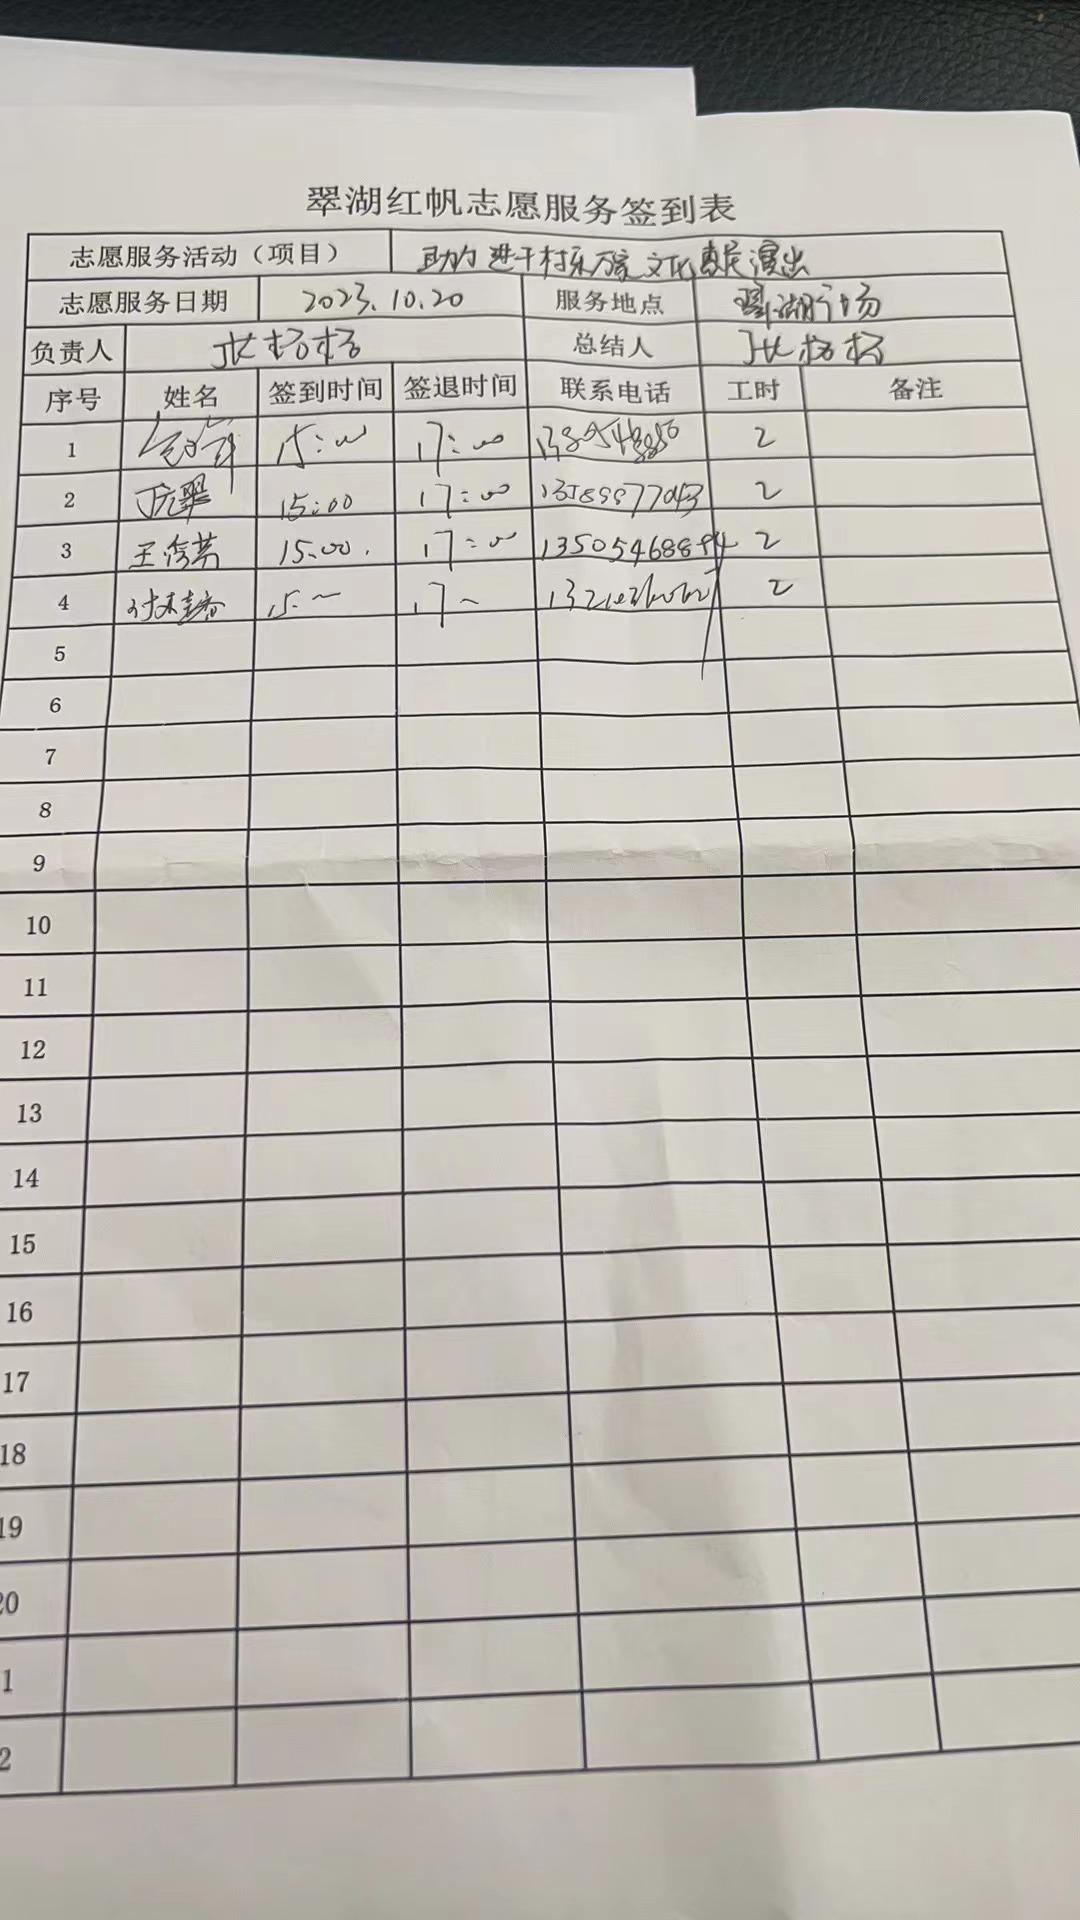 翠湖红帆志愿服务签到表
志愿服务活动（项目） 助力进千村乐万家文化惠民演出
志愿服务日期 2023.10.20 服务地点 翠湖广场
负责人 张杨杨 总结人 张杨杨
序号 姓名 签到时间 签退时间 联系电话 工时 备注
1 15:00 17:00 2
2 15:00 17:00 13589877043 2
3 王秀英 15:00. 17:00 13505468894 2
4 15:~ 17~ 2
5
6
7
8
9
10
11
12
13
14
15
16
17
18
19
20
1
2